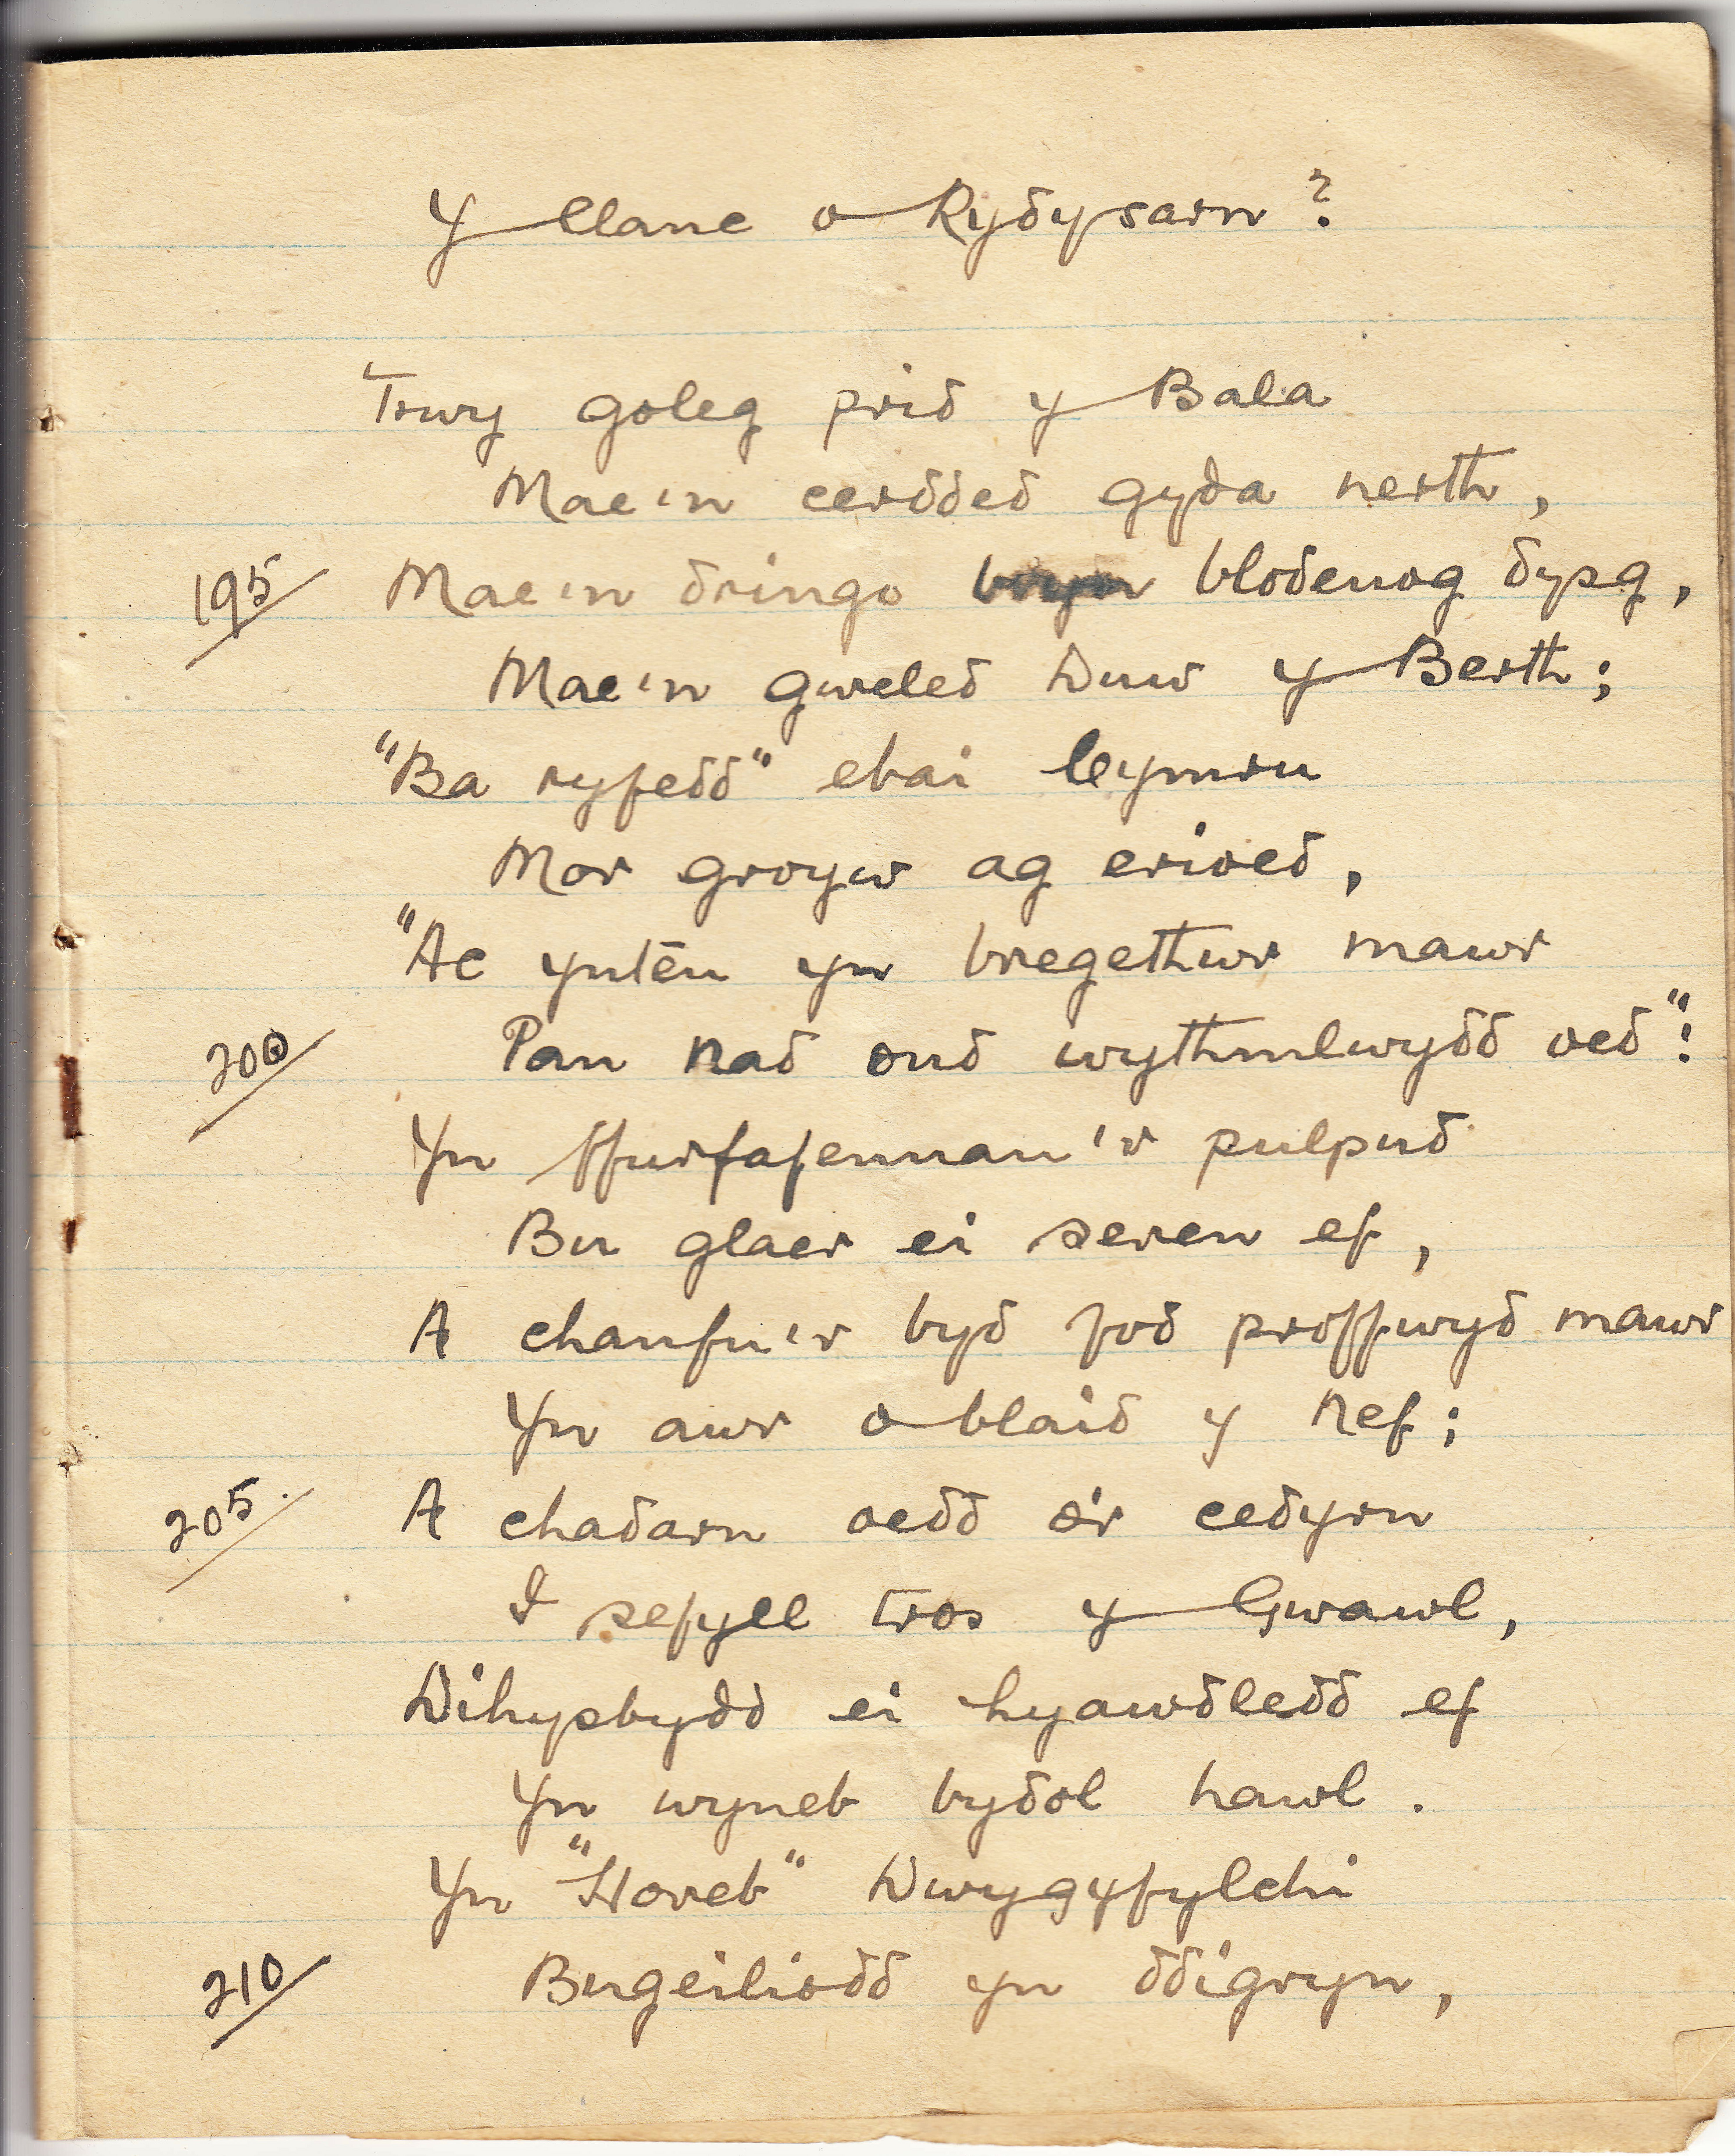 Y llanc o Rydysarn?
Trwy goleg prid y Bala
Mae'n cerdded gyda nerth,
195 Mae'n dringo bryn blodeuog dysg,
Mae'n gweled Duw y Berth;
"Ba ryfedd" ebai Cymru
Mor groyw ag erioed,
"Ac yntēu yn bregethwr mawr
200 Pan nad ond wythmlwydd oed"!
Yn ffurfafennau'r pulpud
Bu glaer ei seren ef,
A chanfu'r byd fod proffwyd mawr
Yn awr o blaid y Nef;
205. A chadarn oedd o'r cedyrn
I sefyll tros y Gwawl,
Dihysbydd ei hyawdledd ef
Yn wyneb bydol hawl.
Yn "Horeb" Dwygyfylchi
210 Bugeiliodd yn ddigryn,